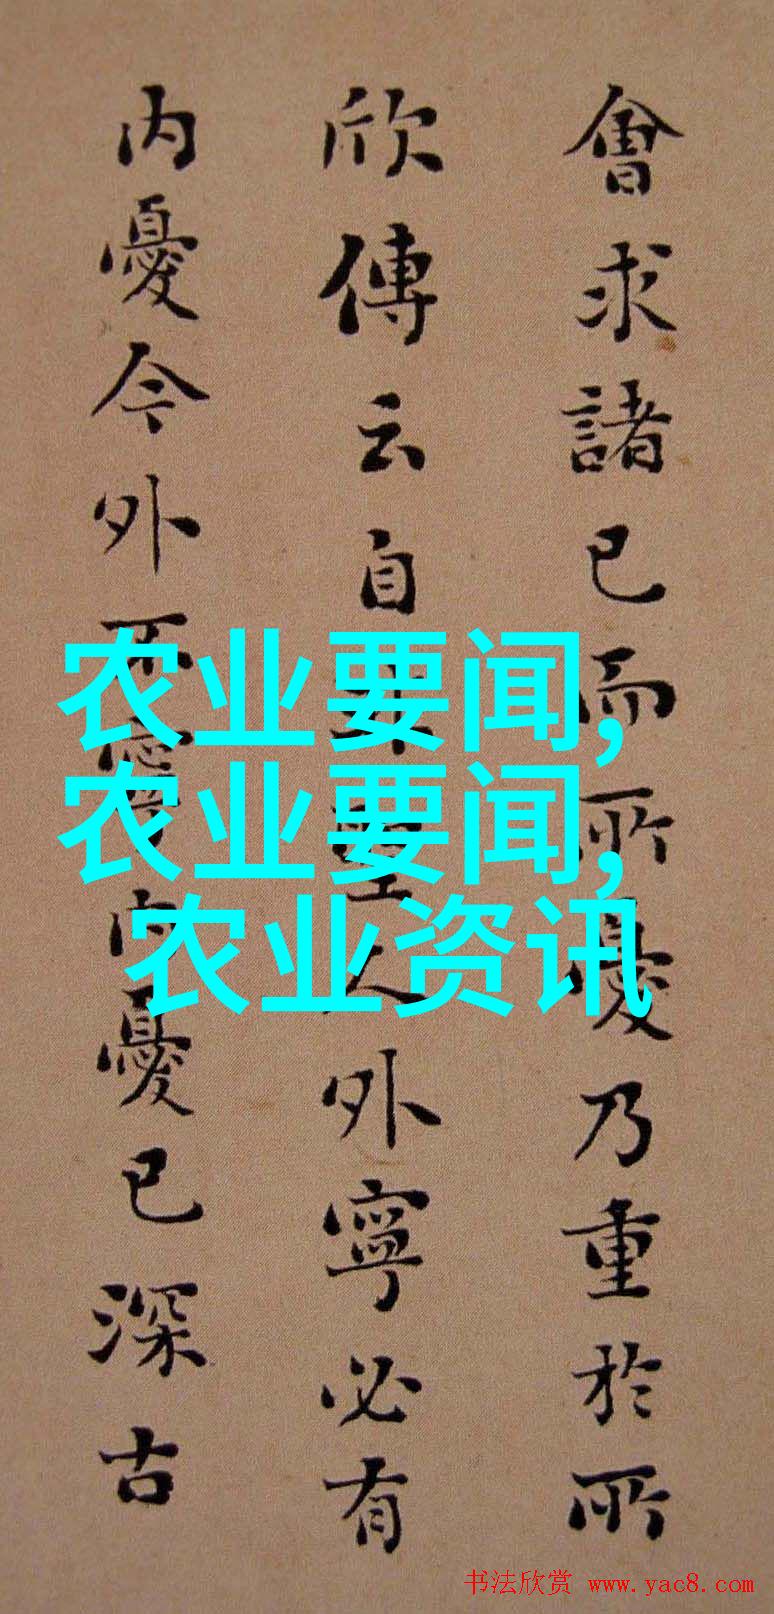 會求諸己而所憂乃重於所
欣傳云自非聖人外寧必有
内憂今外不寧内憂已深古
农业要闻,
农业要闻,
农业资讯
书法欣赏 www.yac8.com